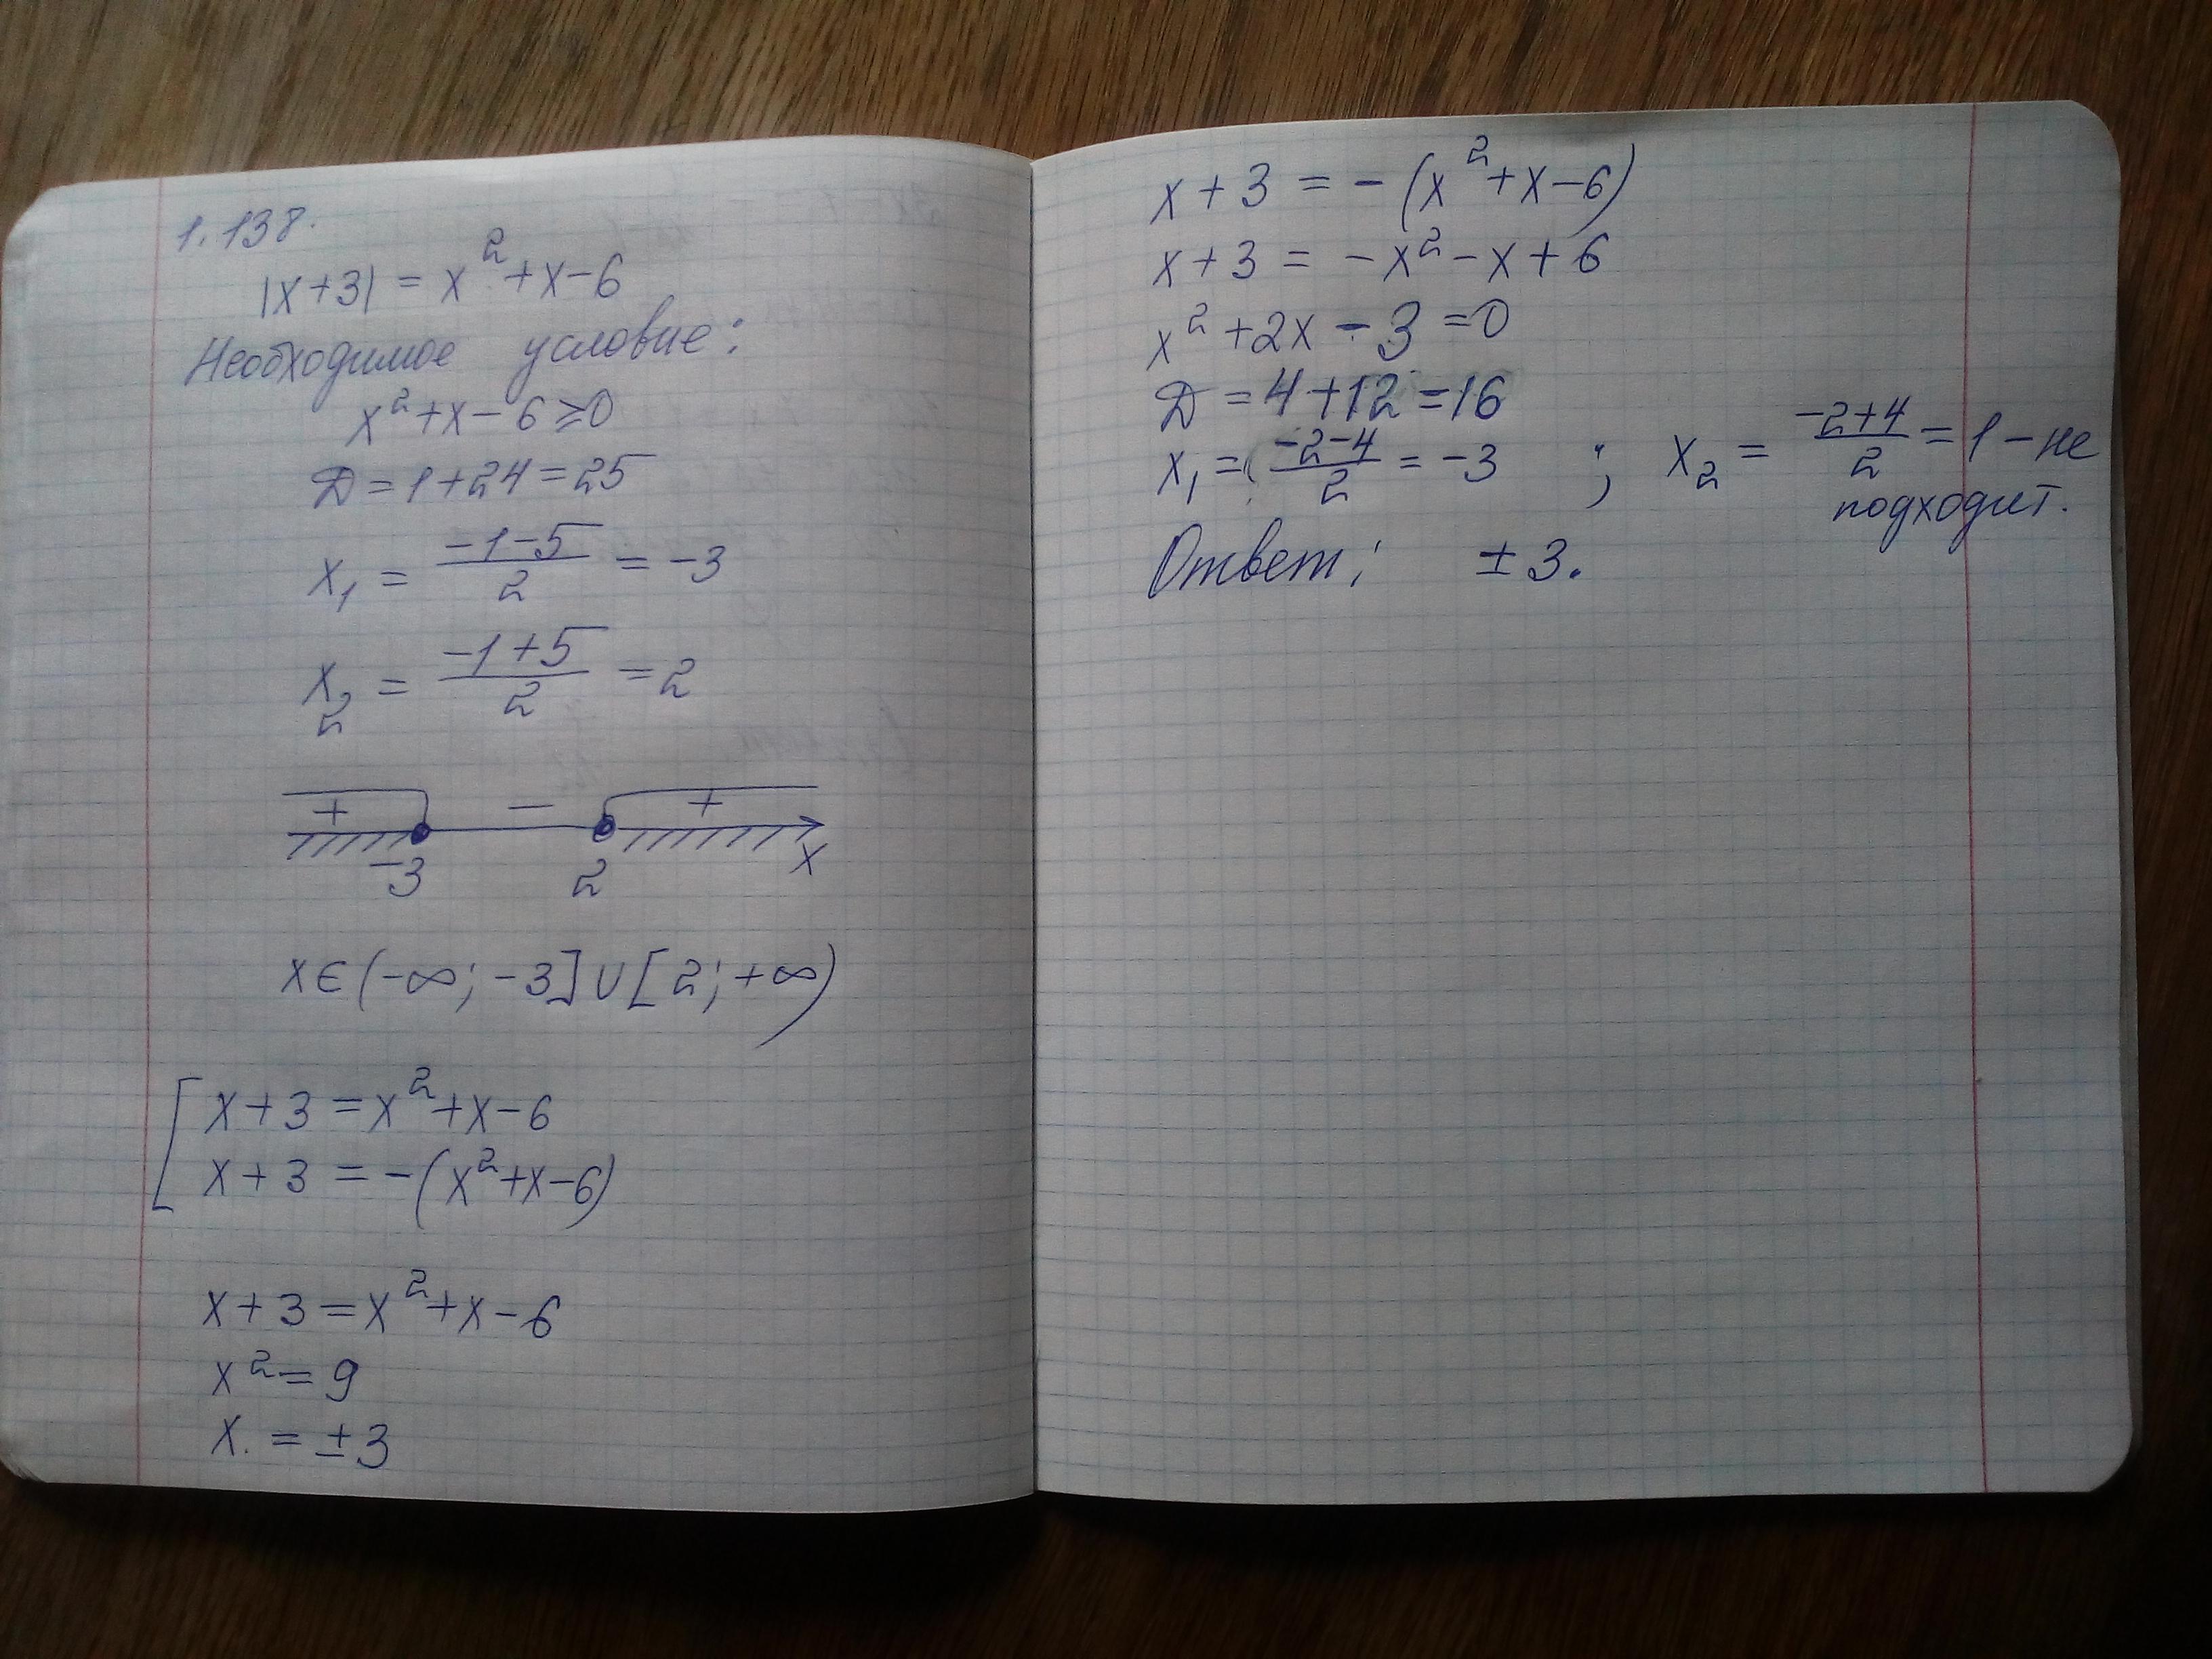 1.138.
|x+3| = x²+x-6
Необходимое условие:
x²+x-6⩾0
D=1+24=25
x₁ = (-1-5)/2 = -3
x₂ = (-1+5)/2 = 2
+ − +
-3 2 x
x∈(-∞; -3]∪[2; +∞)
[ x+3=x²+x-6
x+3=-(x²+x-6)
x+3=x²+x-6
x²=9
x. = ±3
x+3 = -(x²+x-6)
x+3 = -x²-x+6
x²+2x-3=0
D=4+12=16
x₁ = (-2-4)/2 = -3 ; x₂ = (-2+4)/2 = 1 - не
подходит.
Ответ: ±3.